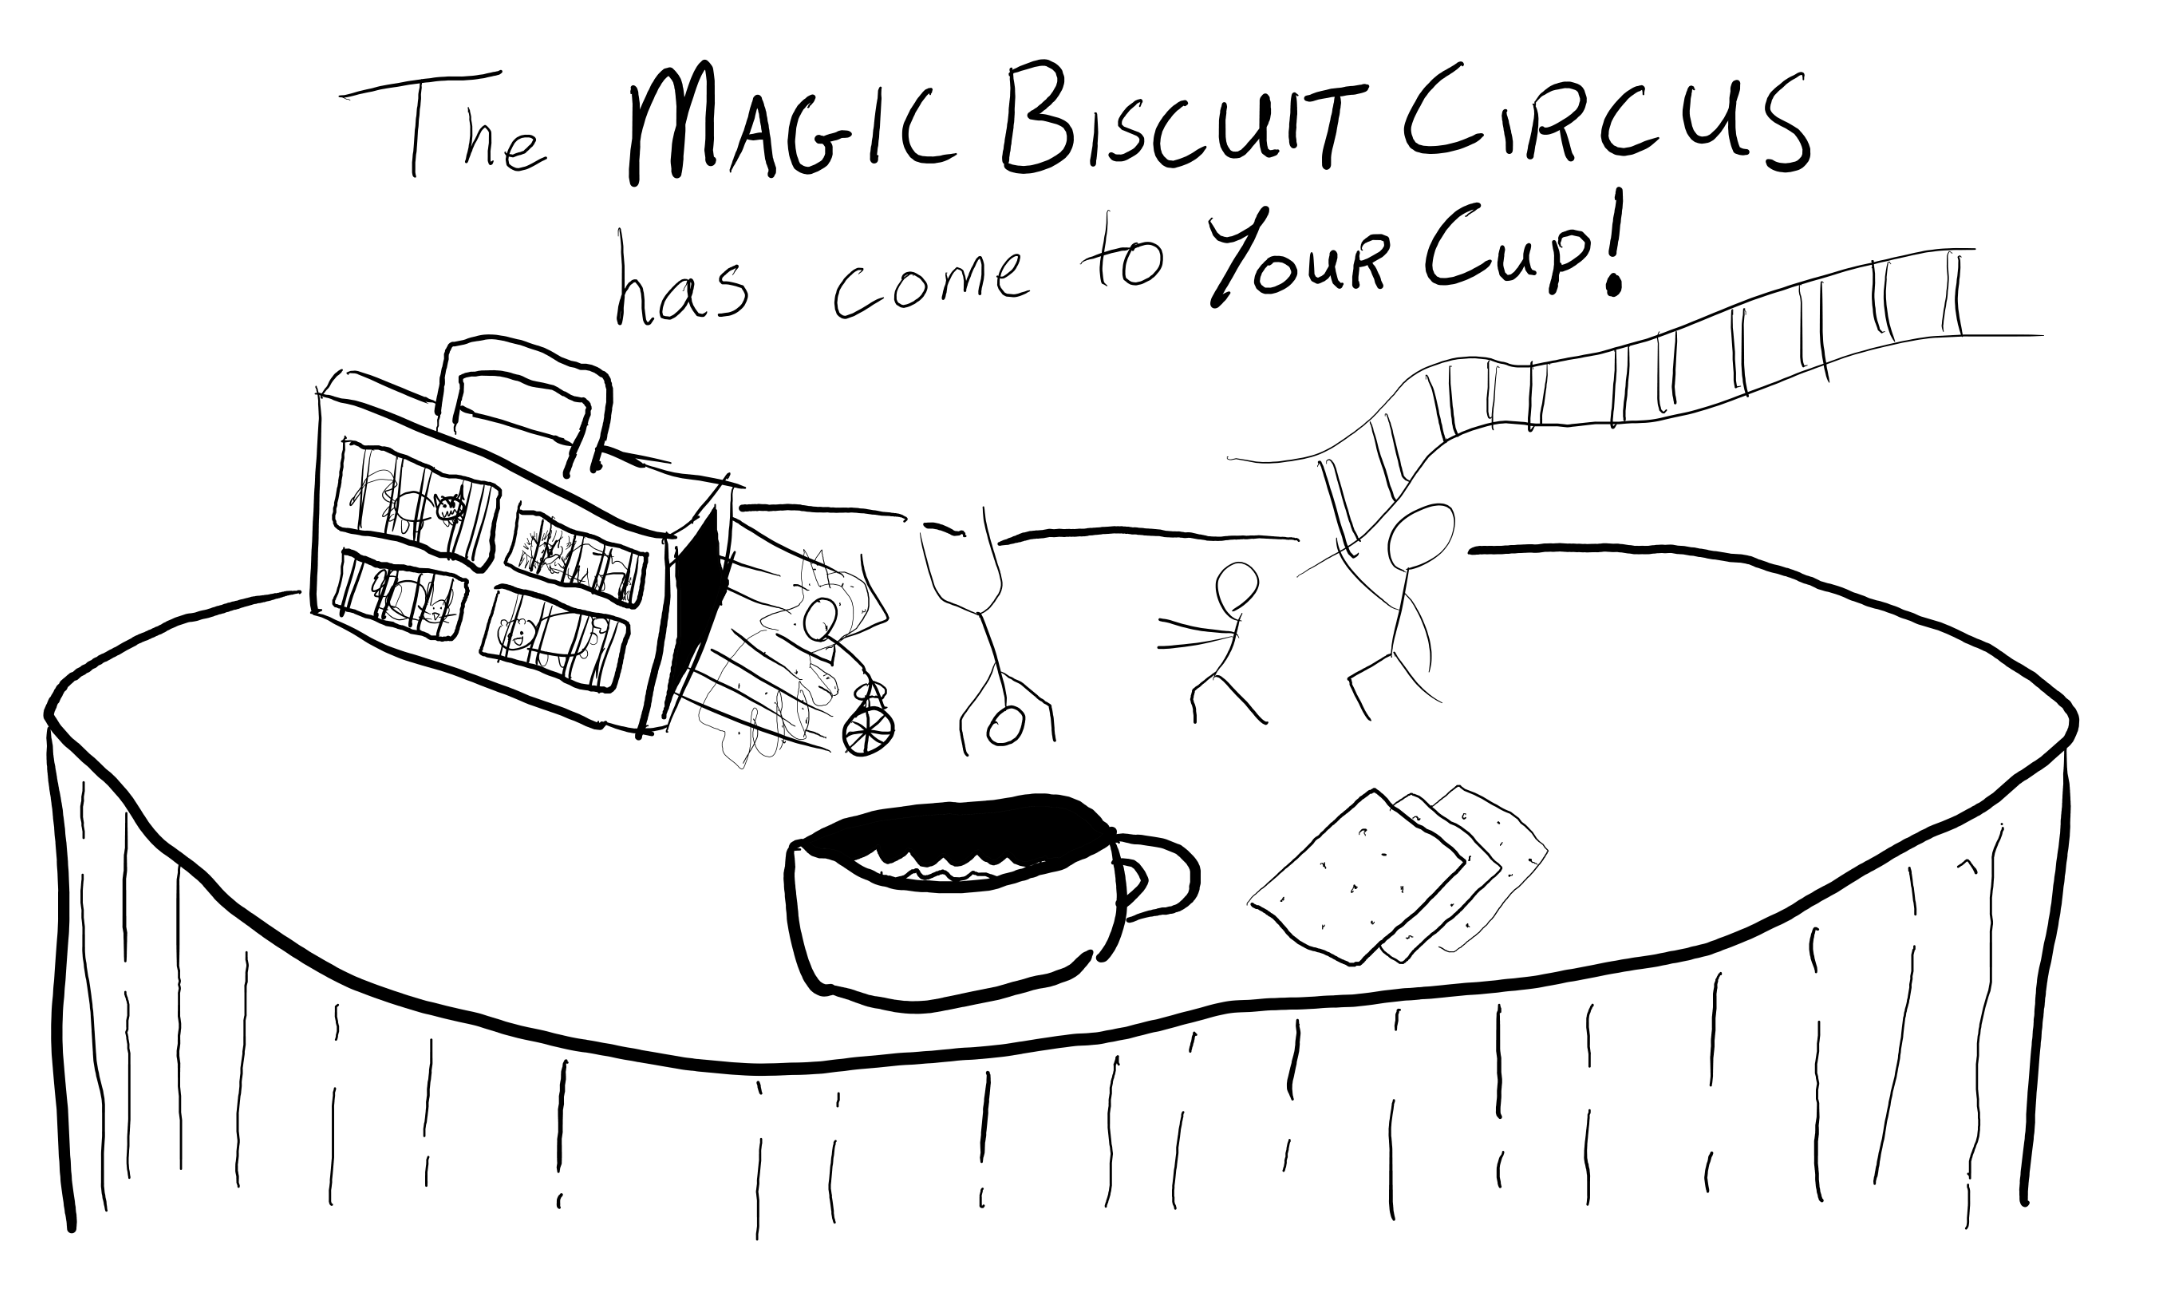 The MAGIC BISCUIT CIRCUS
has come to YOUR CUP!